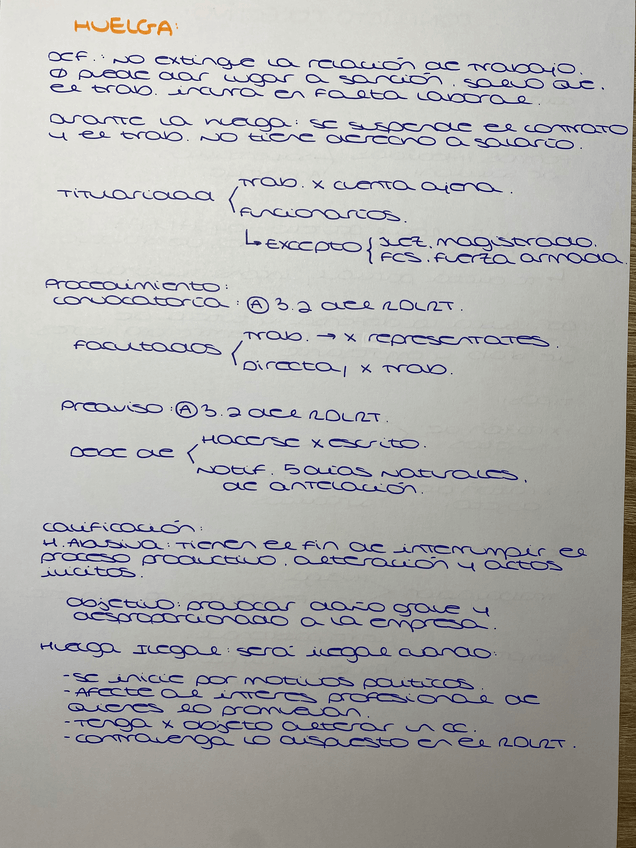 HUELGA:
DEF.: NO EXTINGUE LA RELACIÓN DE TRABAJO.
Ø PUEDE DAR LUGAR A SANCIÓN. SALVO QUE.
EL TRAB. INCURRA EN FALTA LABORAL.
DURANTE LA HUELGA: SE SUSPENDE EL CONTRATO
Y EL TRAB. NO TIENE DERECHO A SALARIO.
TITULARIDAD
TRAB. X CUENTA AJENA.
FUNCIONARIOS.
↳ EXCEPTO { JUEZ. MAGISTRADO.
FCS. FUERZA ARMADA.
PROCEDIMIENTO:
CONVOCATORIA: Ⓐ 3.2 DEL RDLRT.
FACULTADOS
TRAB. → X REPRESENTATES.
DIRECTA, X TRAB.
PREAVISO: Ⓐ 3.2 DEL RDLRT.
DEBE DE
HACERSE X ESCRITO.
NOTIF. 5 DIAS NATURALES.
DE ANTELACIÓN.
CALIFICACIÓN:
H. ABUSIVA: TIENEN EL FIN DE INTERRUMPIR EL
PROCESO PRODUCTIVO. ALTERACIÓN Y ACTOS
ILICITOS.
OBJETIVO: PROVOCAR DAÑO GRAVE Y
DESPROPORCIONADO A LA EMPRESA.
HUELGA ILEGAL: SERÁ ILEGAL CUANDO:
- SE INICIE POR MOTIVOS POLITICOS.
- AFECTE AL INTERES PROFESIONAL DE
QUIENES LO PROMUEVAN.
- TENGA X OBJETO ALTERAR UN CC.
- CONTRAVENGA LO DISPUESTO EN EL RDLRT.